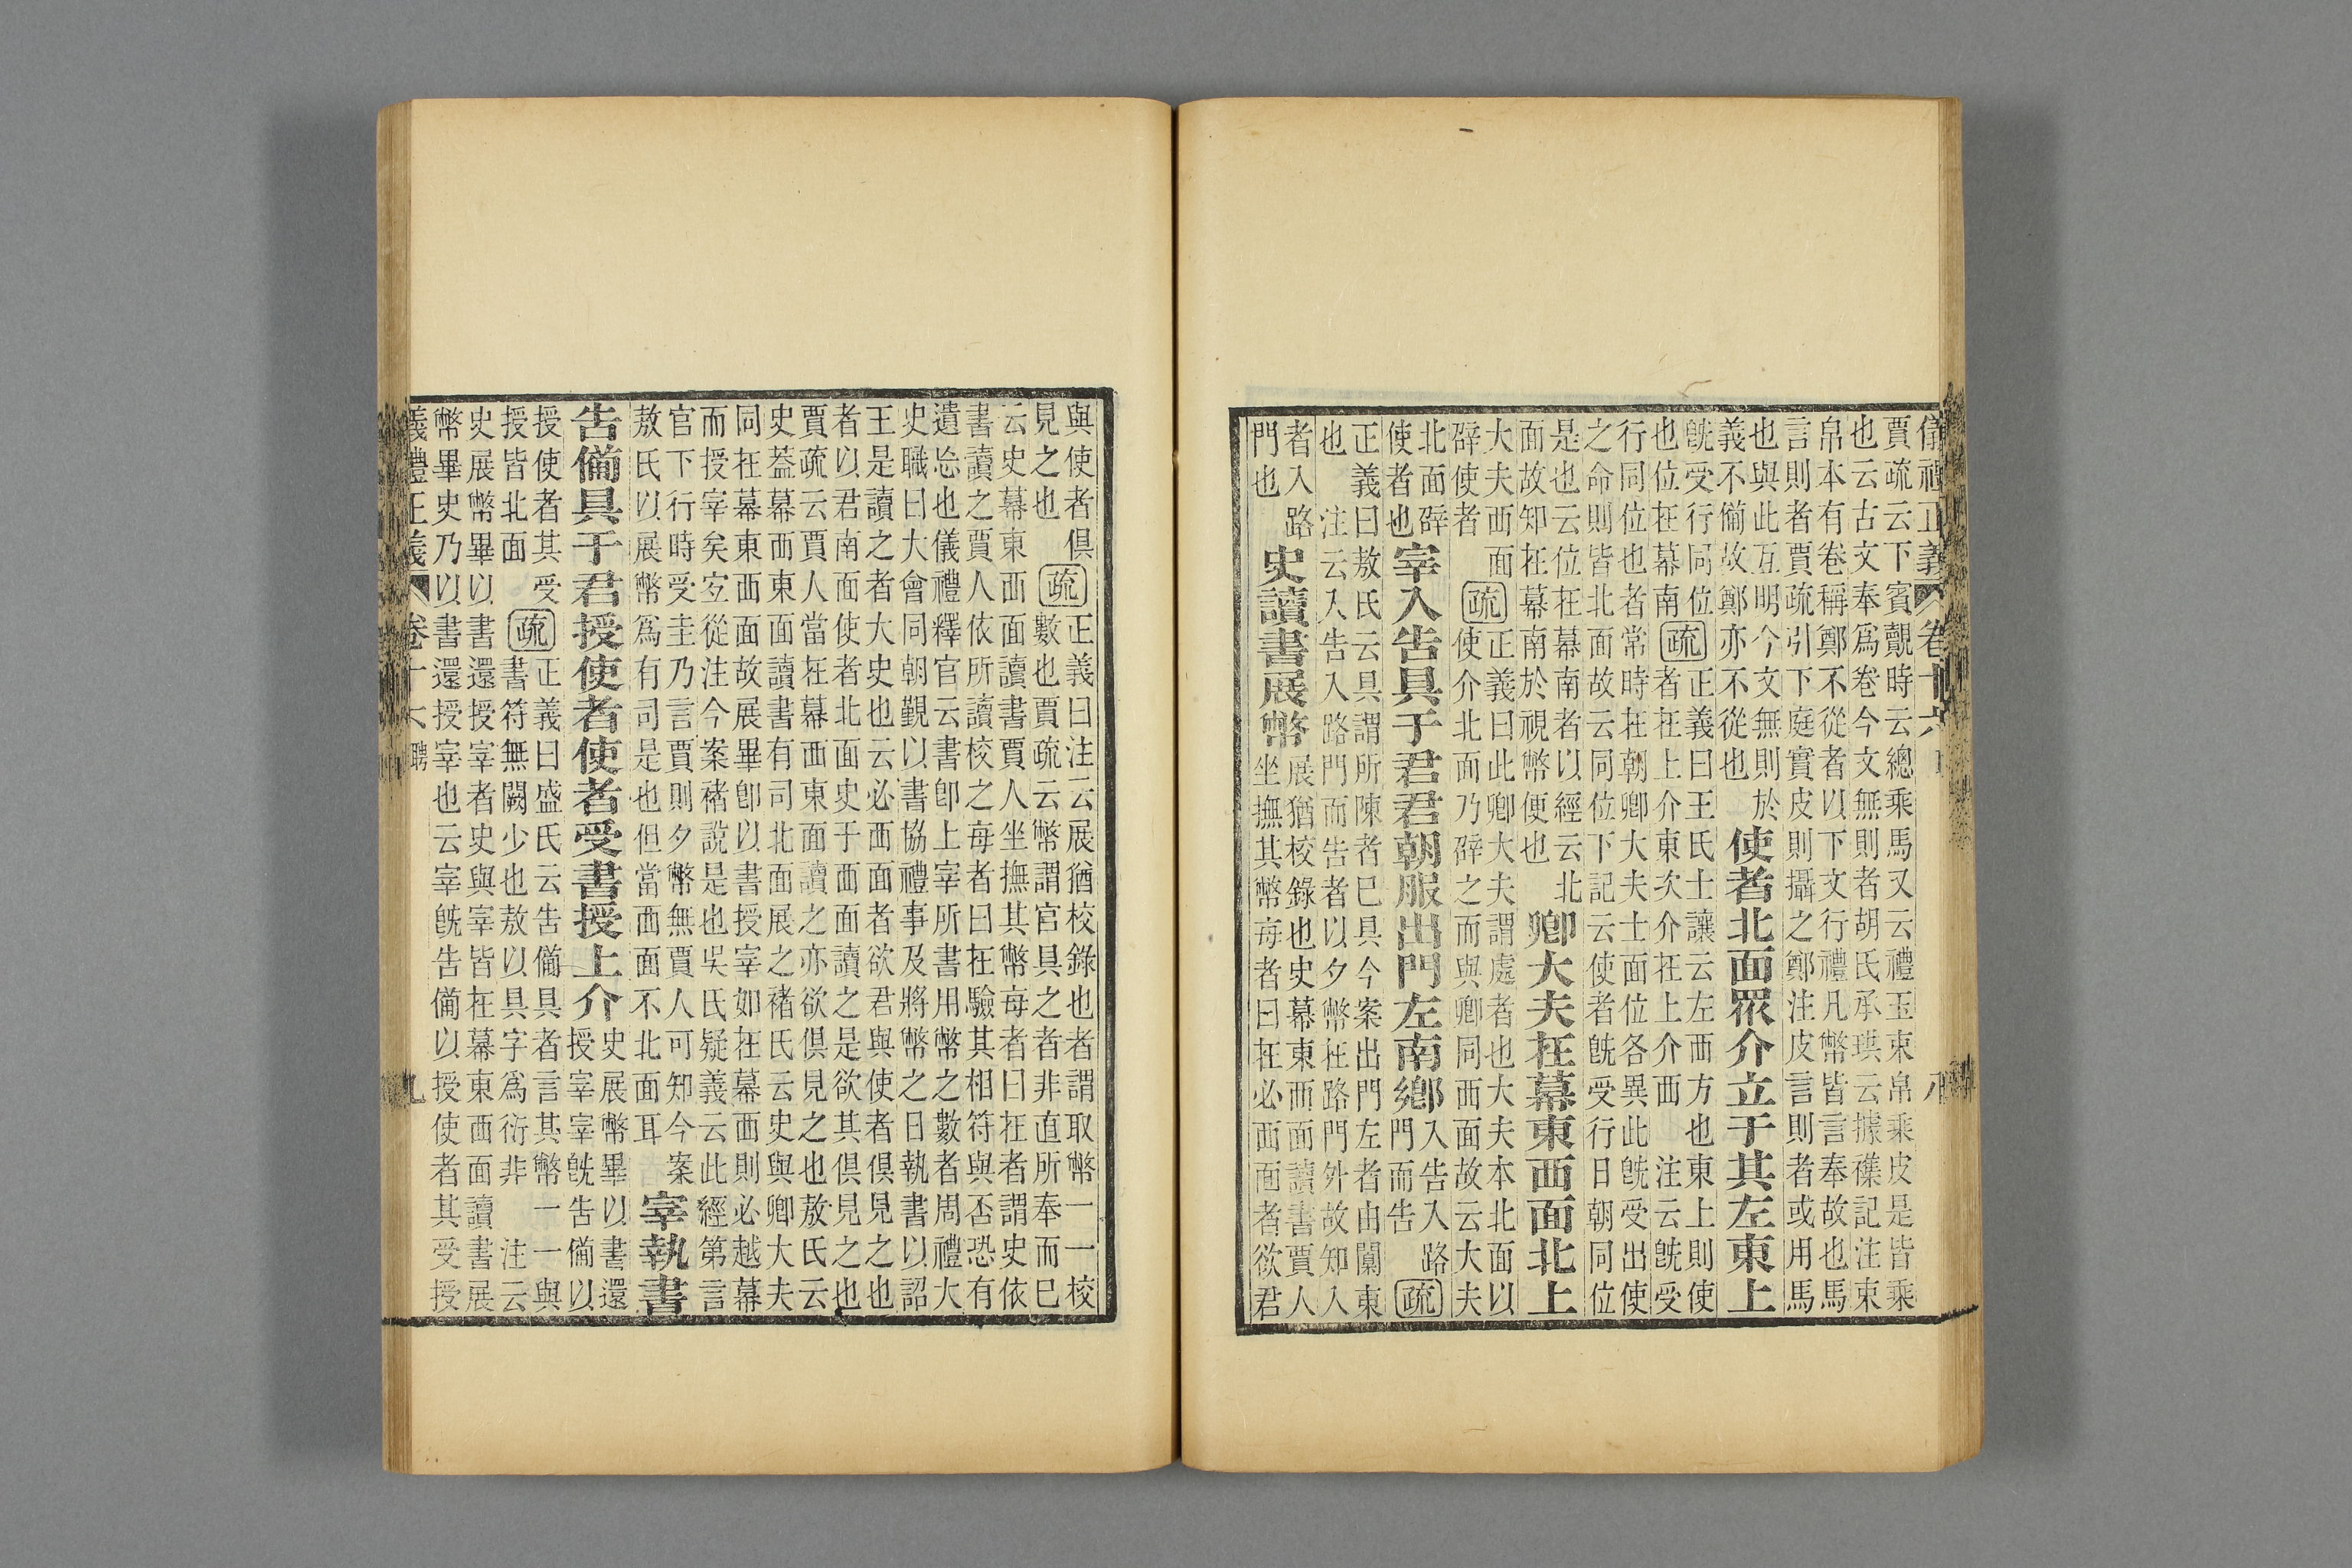 儀禮正義 卷十六 八
賈疏云下賓覿時云總乘馬又云禮玉束帛乘皮是皆乘
也云古文奉爲卷今文無則者胡氏承珙云據襍記注束
帛本有卷稱鄭不從者以下文行禮凡幣皆言奉故也馬
言則者賈疏引下庭實皮則攝之鄭注皮言則者或用馬
也與此互明今文無則於
義不備故鄭亦不從也
使者北面眾介立于其左東上
既受行同位
也位在幕南
疏
正義曰王氏士讓云左西方也東上則使
者在上介東次介在上介西 注云既受
行同位也者常時在朝卿大夫士面位各異此既受出使
之命則皆北面故云同位下記云使者既受行日朝同位
是也云位在幕南者以經云北
面故知在幕南於視幣便也
卿大夫在幕東西面北上
大夫西面
辟使者
疏
正義曰此卿大夫謂處者也大夫本北面以
使介北面乃辟之而與卿同西面故云大夫
北面辟
使者也
宰入告具于君君朝服出門左南鄉
入告入路
門而告
疏
正義曰敖氏云具謂所陳者已具今案出門左者由闑東
也 注云入告入路門而告者以夕幣在路門外故知入
者入路
門也
史讀書展幣
展猶校錄也史幕東西面讀書賈人
坐撫其幣每者曰在必西面者欲君
與使者俱
見之也
疏
正義曰注云展猶校錄也者謂取幣一一校
數也賈疏云幣謂官具之者非直所奉而已
云史幕東西面讀書賈人坐撫其幣每者曰在者謂史依
書讀之賈人依所讀校之每者曰在驗其相符與否恐有
遺忘也儀禮釋官云書卽上宰所書用幣之數者周禮大
史職曰大會同朝覲以書協禮事及將幣之日執書以詔
王是讀之者大史也云必西面者欲君與使者俱見之也
者以君南面使者北面史于西面讀之是欲其俱見之也
賈疏云賈人當在幕西東面讀之亦欲俱見之也敖氏云
史葢幕西東面讀書有司北面展之褚氏云史與卿大夫
同在幕東西面故展畢卽以書授宰如在幕西則必越幕
而授宰矣宜從注今案褚說是也吳氏疑義云此經第言
官下行時受圭乃言賈則夕幣無賈人可知今案
敖氏以展幣爲有司是也但當西面不北面耳
宰執書
告備具于君授使者使者受書授上介
史展幣畢以書還
授宰宰既告備以
授使者其受
授皆北面
疏
正義曰盛氏云告備具者言其幣一一與
書符無闕少也敖以具字爲衍非 注云
史展幣畢以書還授宰者史與宰皆在幕東西面讀書展
幣畢史乃以書還授宰也云宰既告備以授使者其受授
儀禮正義 卷十六 聘 九